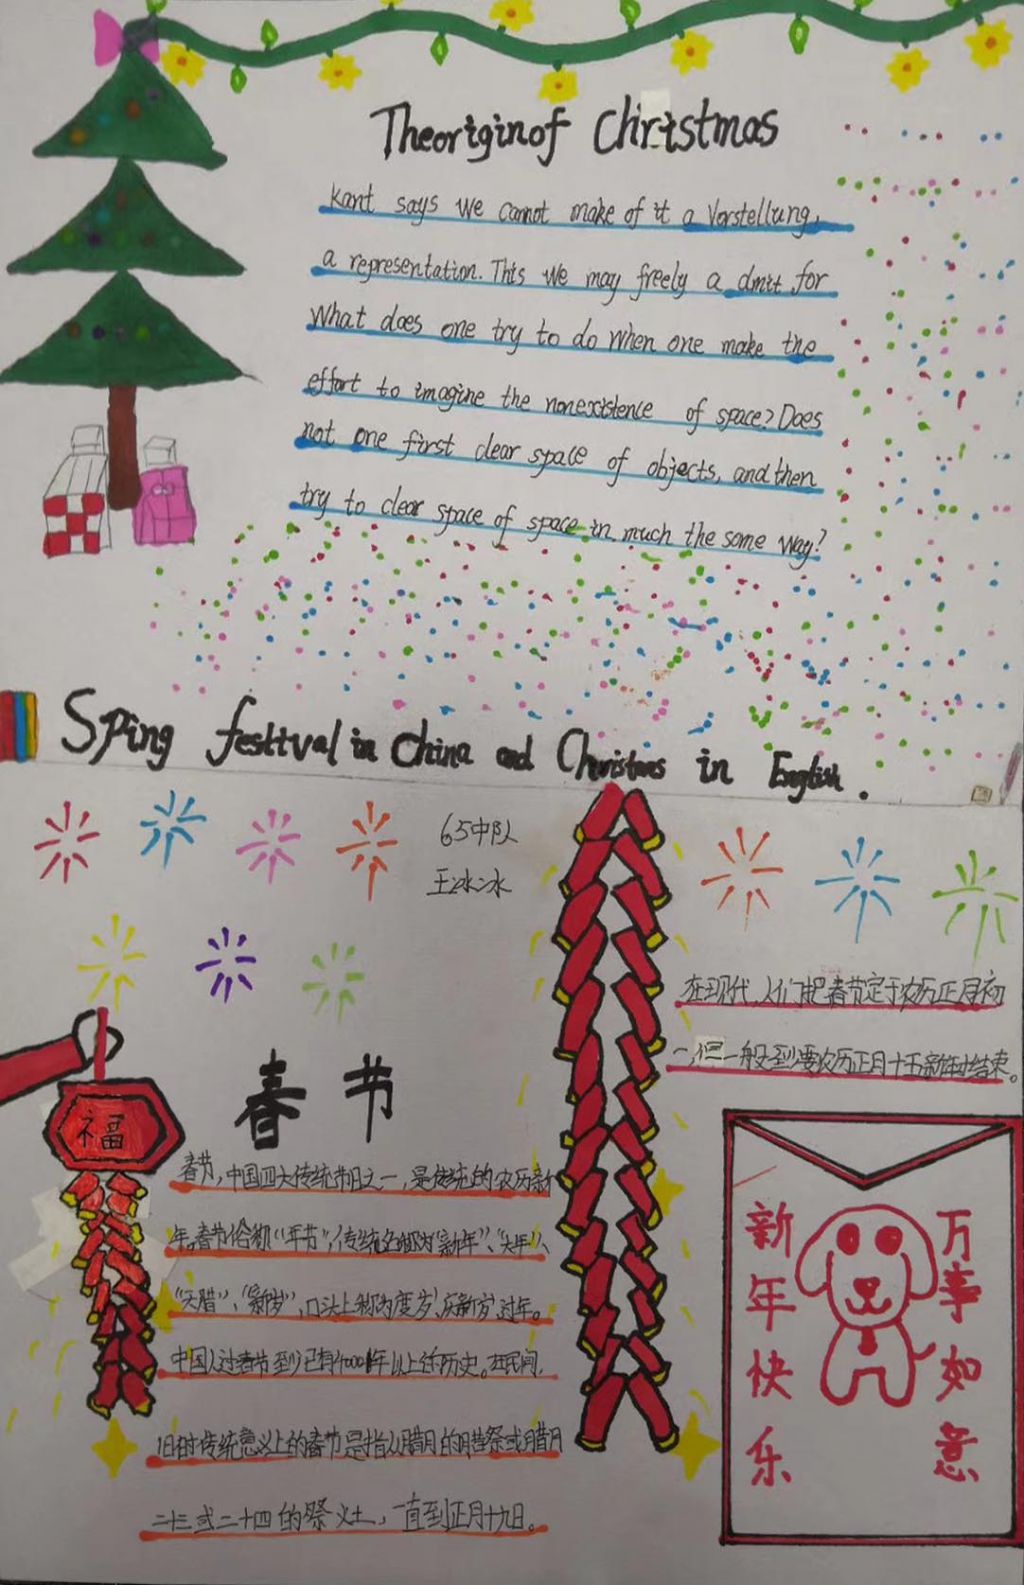 Theoriginof Christmas
Kant says we cannot make of it a Vorstellung,
a representation. This we may freely a dmit for
what does one try to do when one make the
effort to imagine the nonexistence of space? Does
not one first clear space of objects, and then
try to clear space of space in much the same way?
Sping festival in China and Christmas in English.
65中队
王冰冰
在现代,人们把春节定于农历正月初
一,但一般至少要农历正月十五新年才结束。
春节
福
春节,中国四大传统节日之一,是传统的农历新
年。春节俗称“年节”,传统名称为“新年”、“大年”、
“天腊”、“新岁”,口头上称为度岁、庆新岁、过年。
中国人过春节至少已有4000年以上的历史。在民间,
旧时传统意义上的春节是指从腊月的腊祭或腊月
二十三或二十四的祭灶,一直到正月十九日。
新年快乐
万事如意